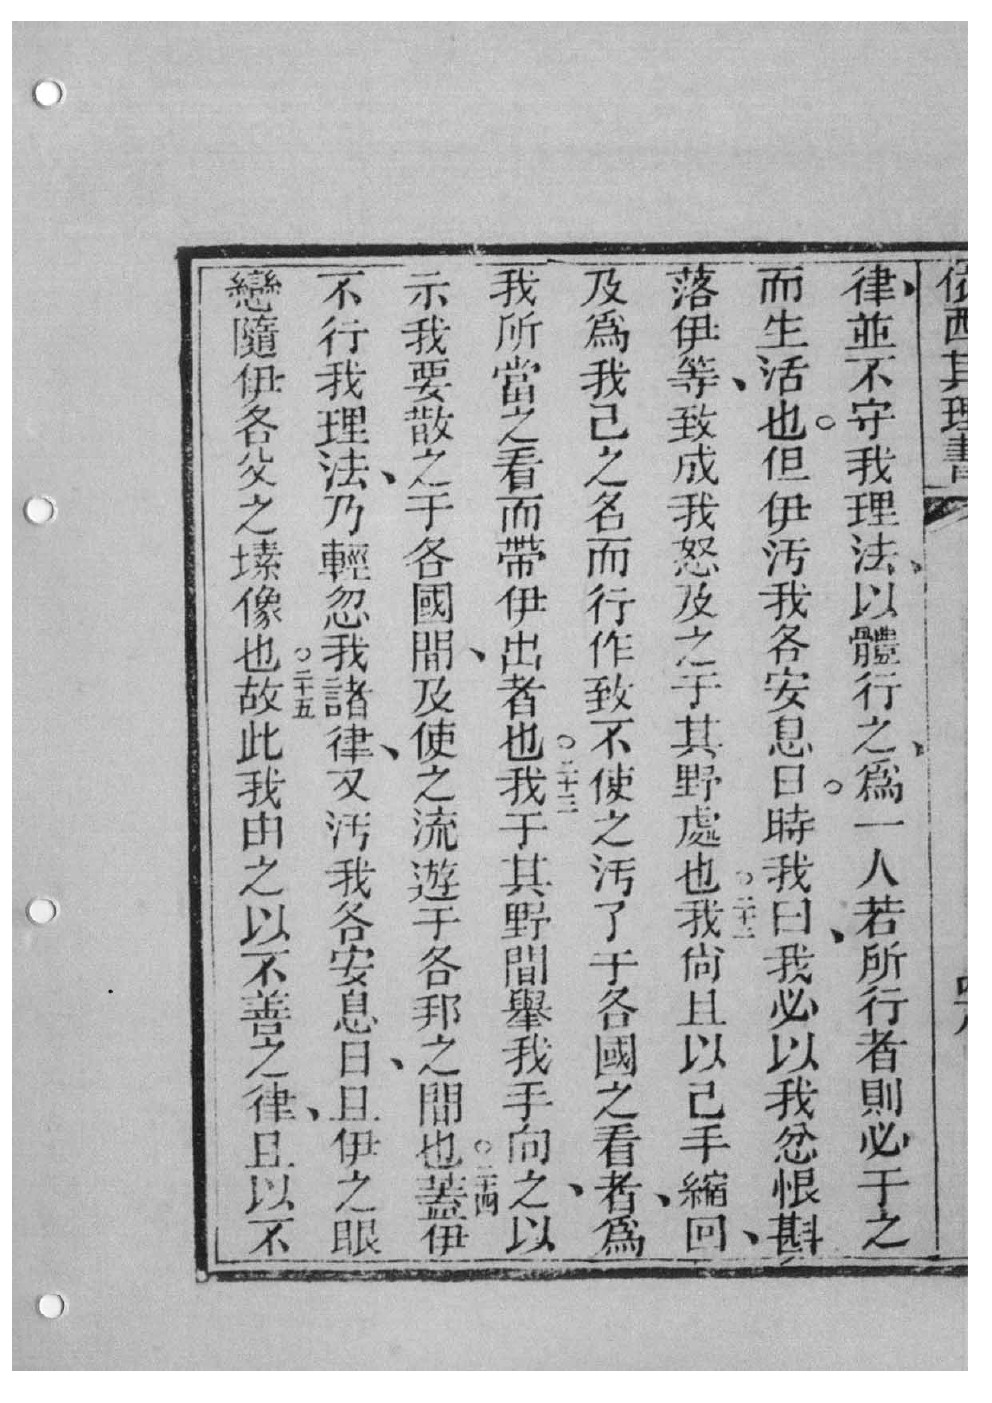 依西其理書
律、並不守我理法、以體行之、爲一人若所行者則必于之
而生活也。但伊汚我各安息日時。我曰、我必以我忿恨斟
落伊等、致成我怒及之于其野處也○二十二我尚且以己手縮回、
及爲我己之名而行作致不使之汚了于各國之看者、爲
我所當之看而帶伊出者也○二十三我于其野間舉我手向之、以
示我要散之于各國間、及使之流遊于各邦之間也○二十四蓋伊
不行我理法、乃輕忽我諸律、又汚我各安息日、且伊之眼
戀隨伊各父之塑像也○二十五故此我由之以不善之律、且以不